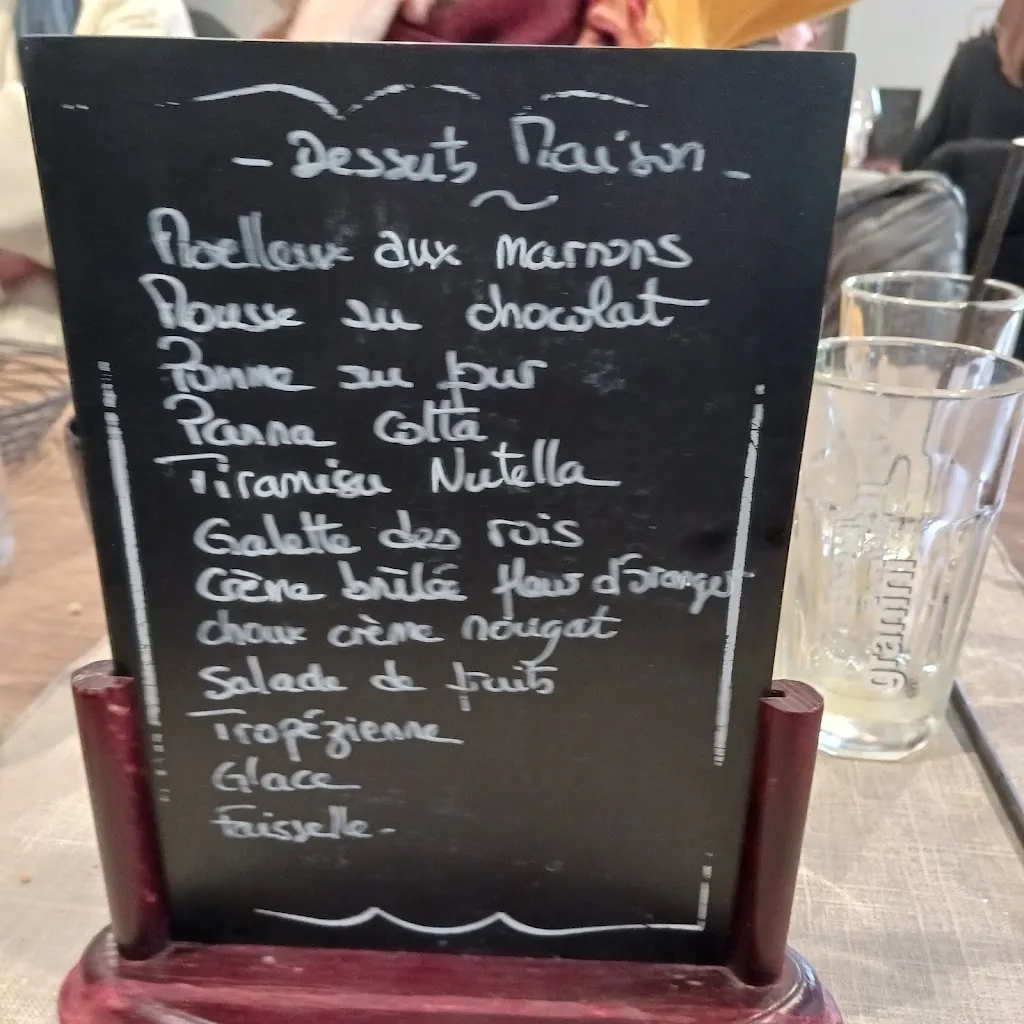 - Desserts Maison -
Moelleux aux marrons
Mousse au chocolat
Pomme au four
Panna Cotta
Tiramisu Nutella
Galette des rois
Crème brûlée fleur d'oranger
choux crème nougat
Salade de fruits
Tropézienne
Glace
Faisselle.
granini